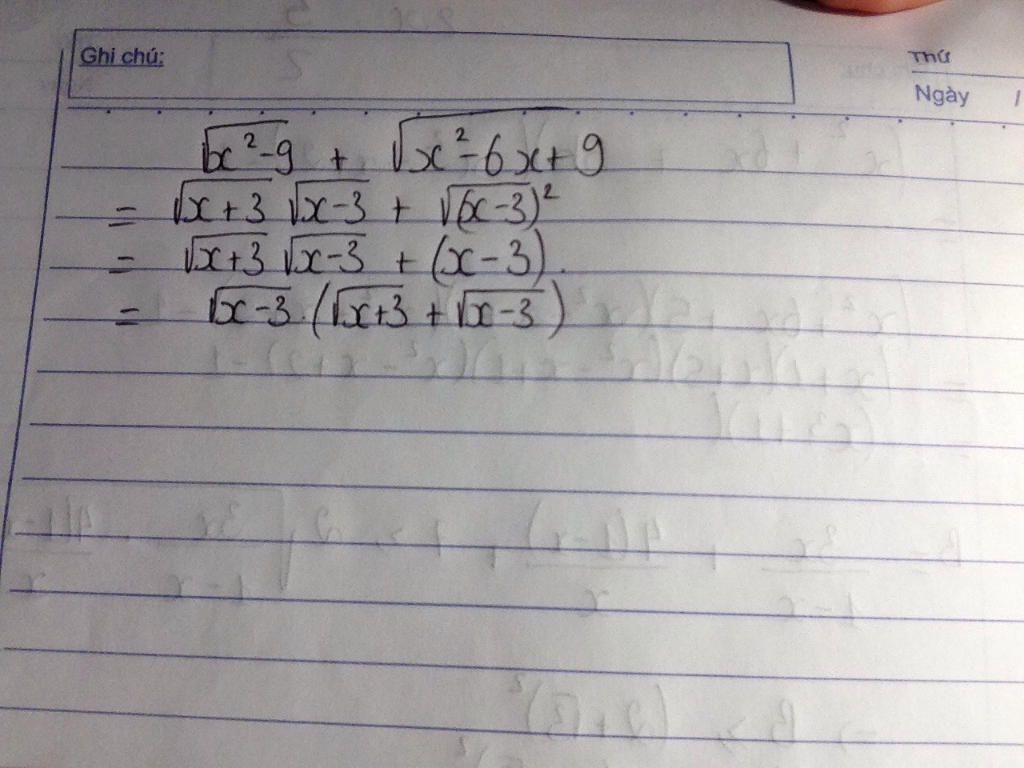 Ghi chú:
Thứ
Ngày /
√(x² - 9) + √(x² - 6x + 9)
= √(x + 3) √(x - 3) + √(x - 3)²
= √(x + 3) √(x - 3) + (x - 3).
= √(x - 3) . (√(x + 3) + √(x - 3))